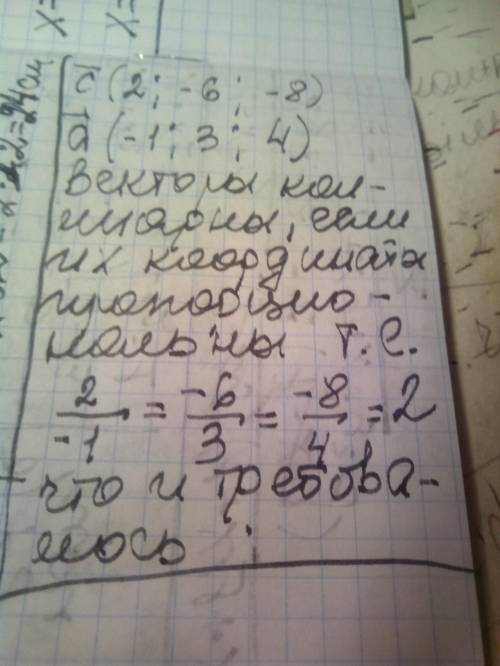 x=
x=
c̅ (2; -6; -8)
a̅ (-1; 3; 4)
Векторы кол-
инарны, если
их координата
пропорцио-
нальны т.е.
2/-1 = -6/3 = -8/4 = 2
что и требова-
лось
=24 см